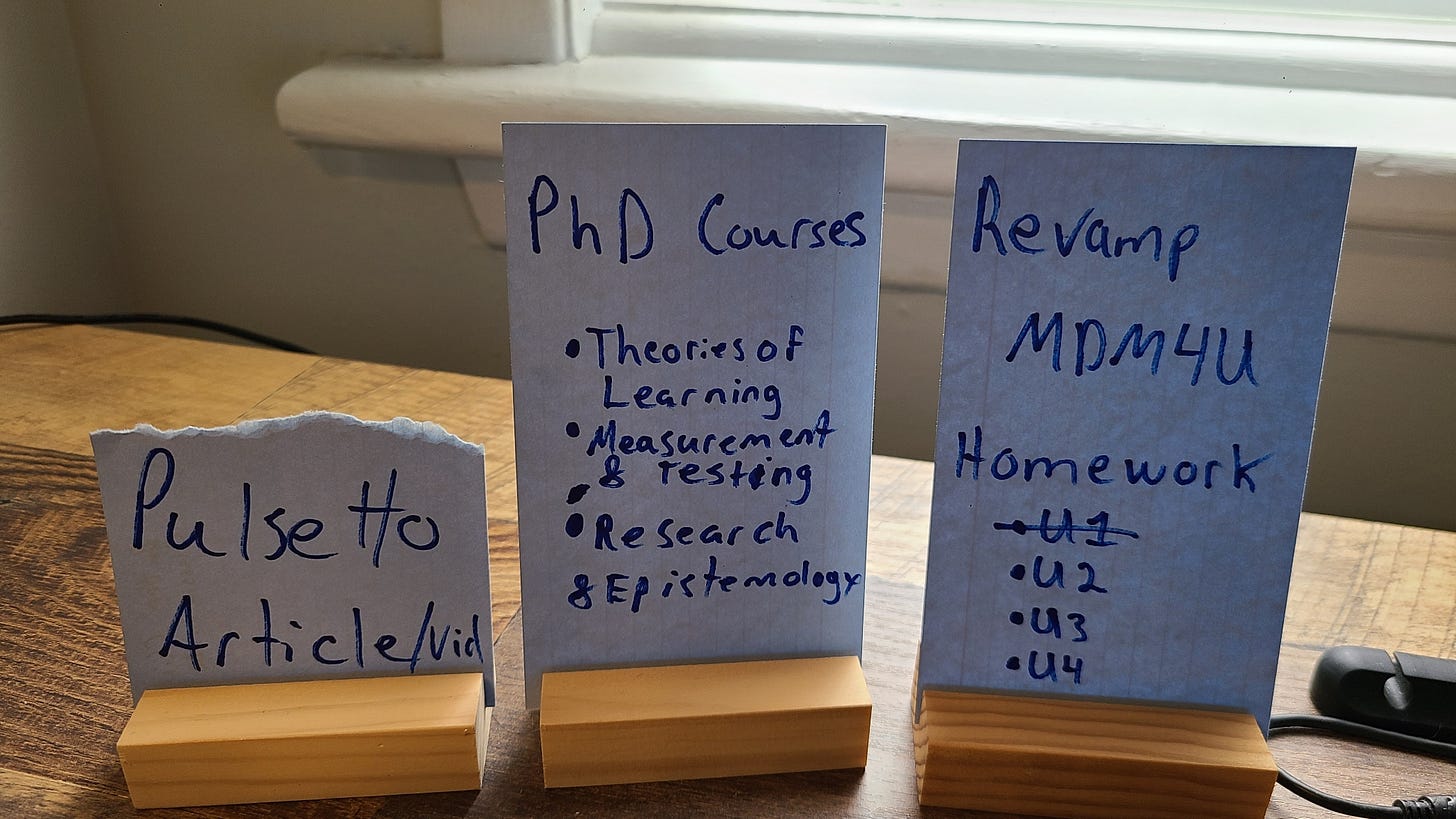 Pulsetto
Article/Vid
PhD Courses
• Theories of
Learning
• Measurement
& Testing
• Research
& Epistemology
Revamp
MDM4U
Homework
• U1
• U2
• U3
• U4